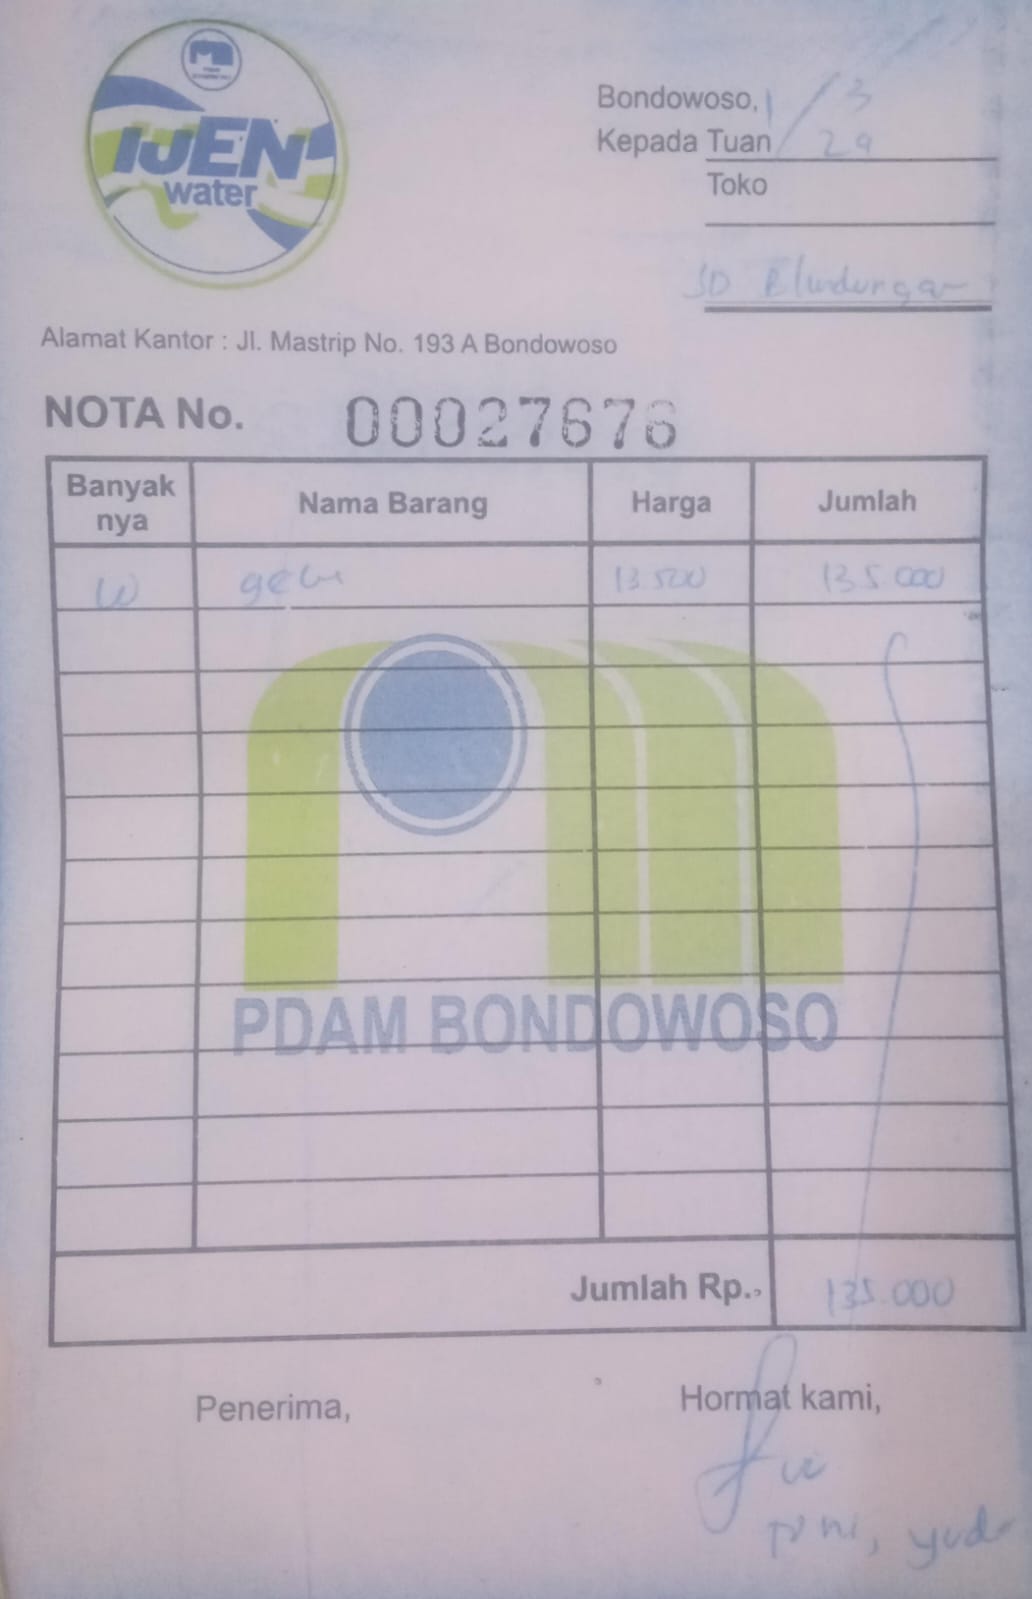 IJEN
water
Bondowoso, 1/3
Kepada Tuan 24
Toko
SD Blindungan
Alamat Kantor : Jl. Mastrip No. 193 A Bondowoso
NOTA No. 00027676
Banyak nya Nama Barang Harga Jumlah
10 gelas 13.500 135.000
PDAM BONDOWOSO
Jumlah Rp., 135.000
Penerima, Hormat kami,